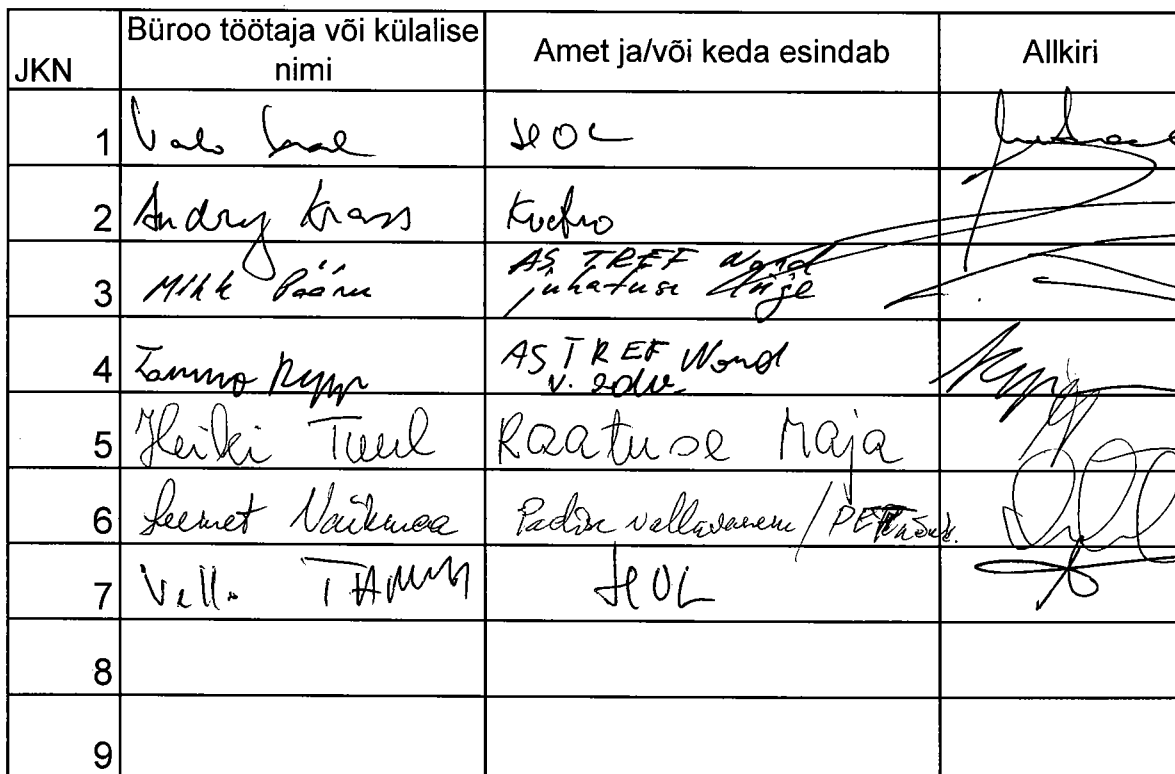 JKN
Büroo töötaja või külalise
nimi
Amet ja/või keda esindab
Allkiri
1 HOL
2 Andrey Krass
3 Mihk Pääru AS TREF Nord
juhatuse liige
4 Tammo AS TREF Nord
5 Heiki Tuul Raatuse Maja
6 Leemet Vaikmaa Padise vallavanem /
7 Vello TAMM HOL
8
9